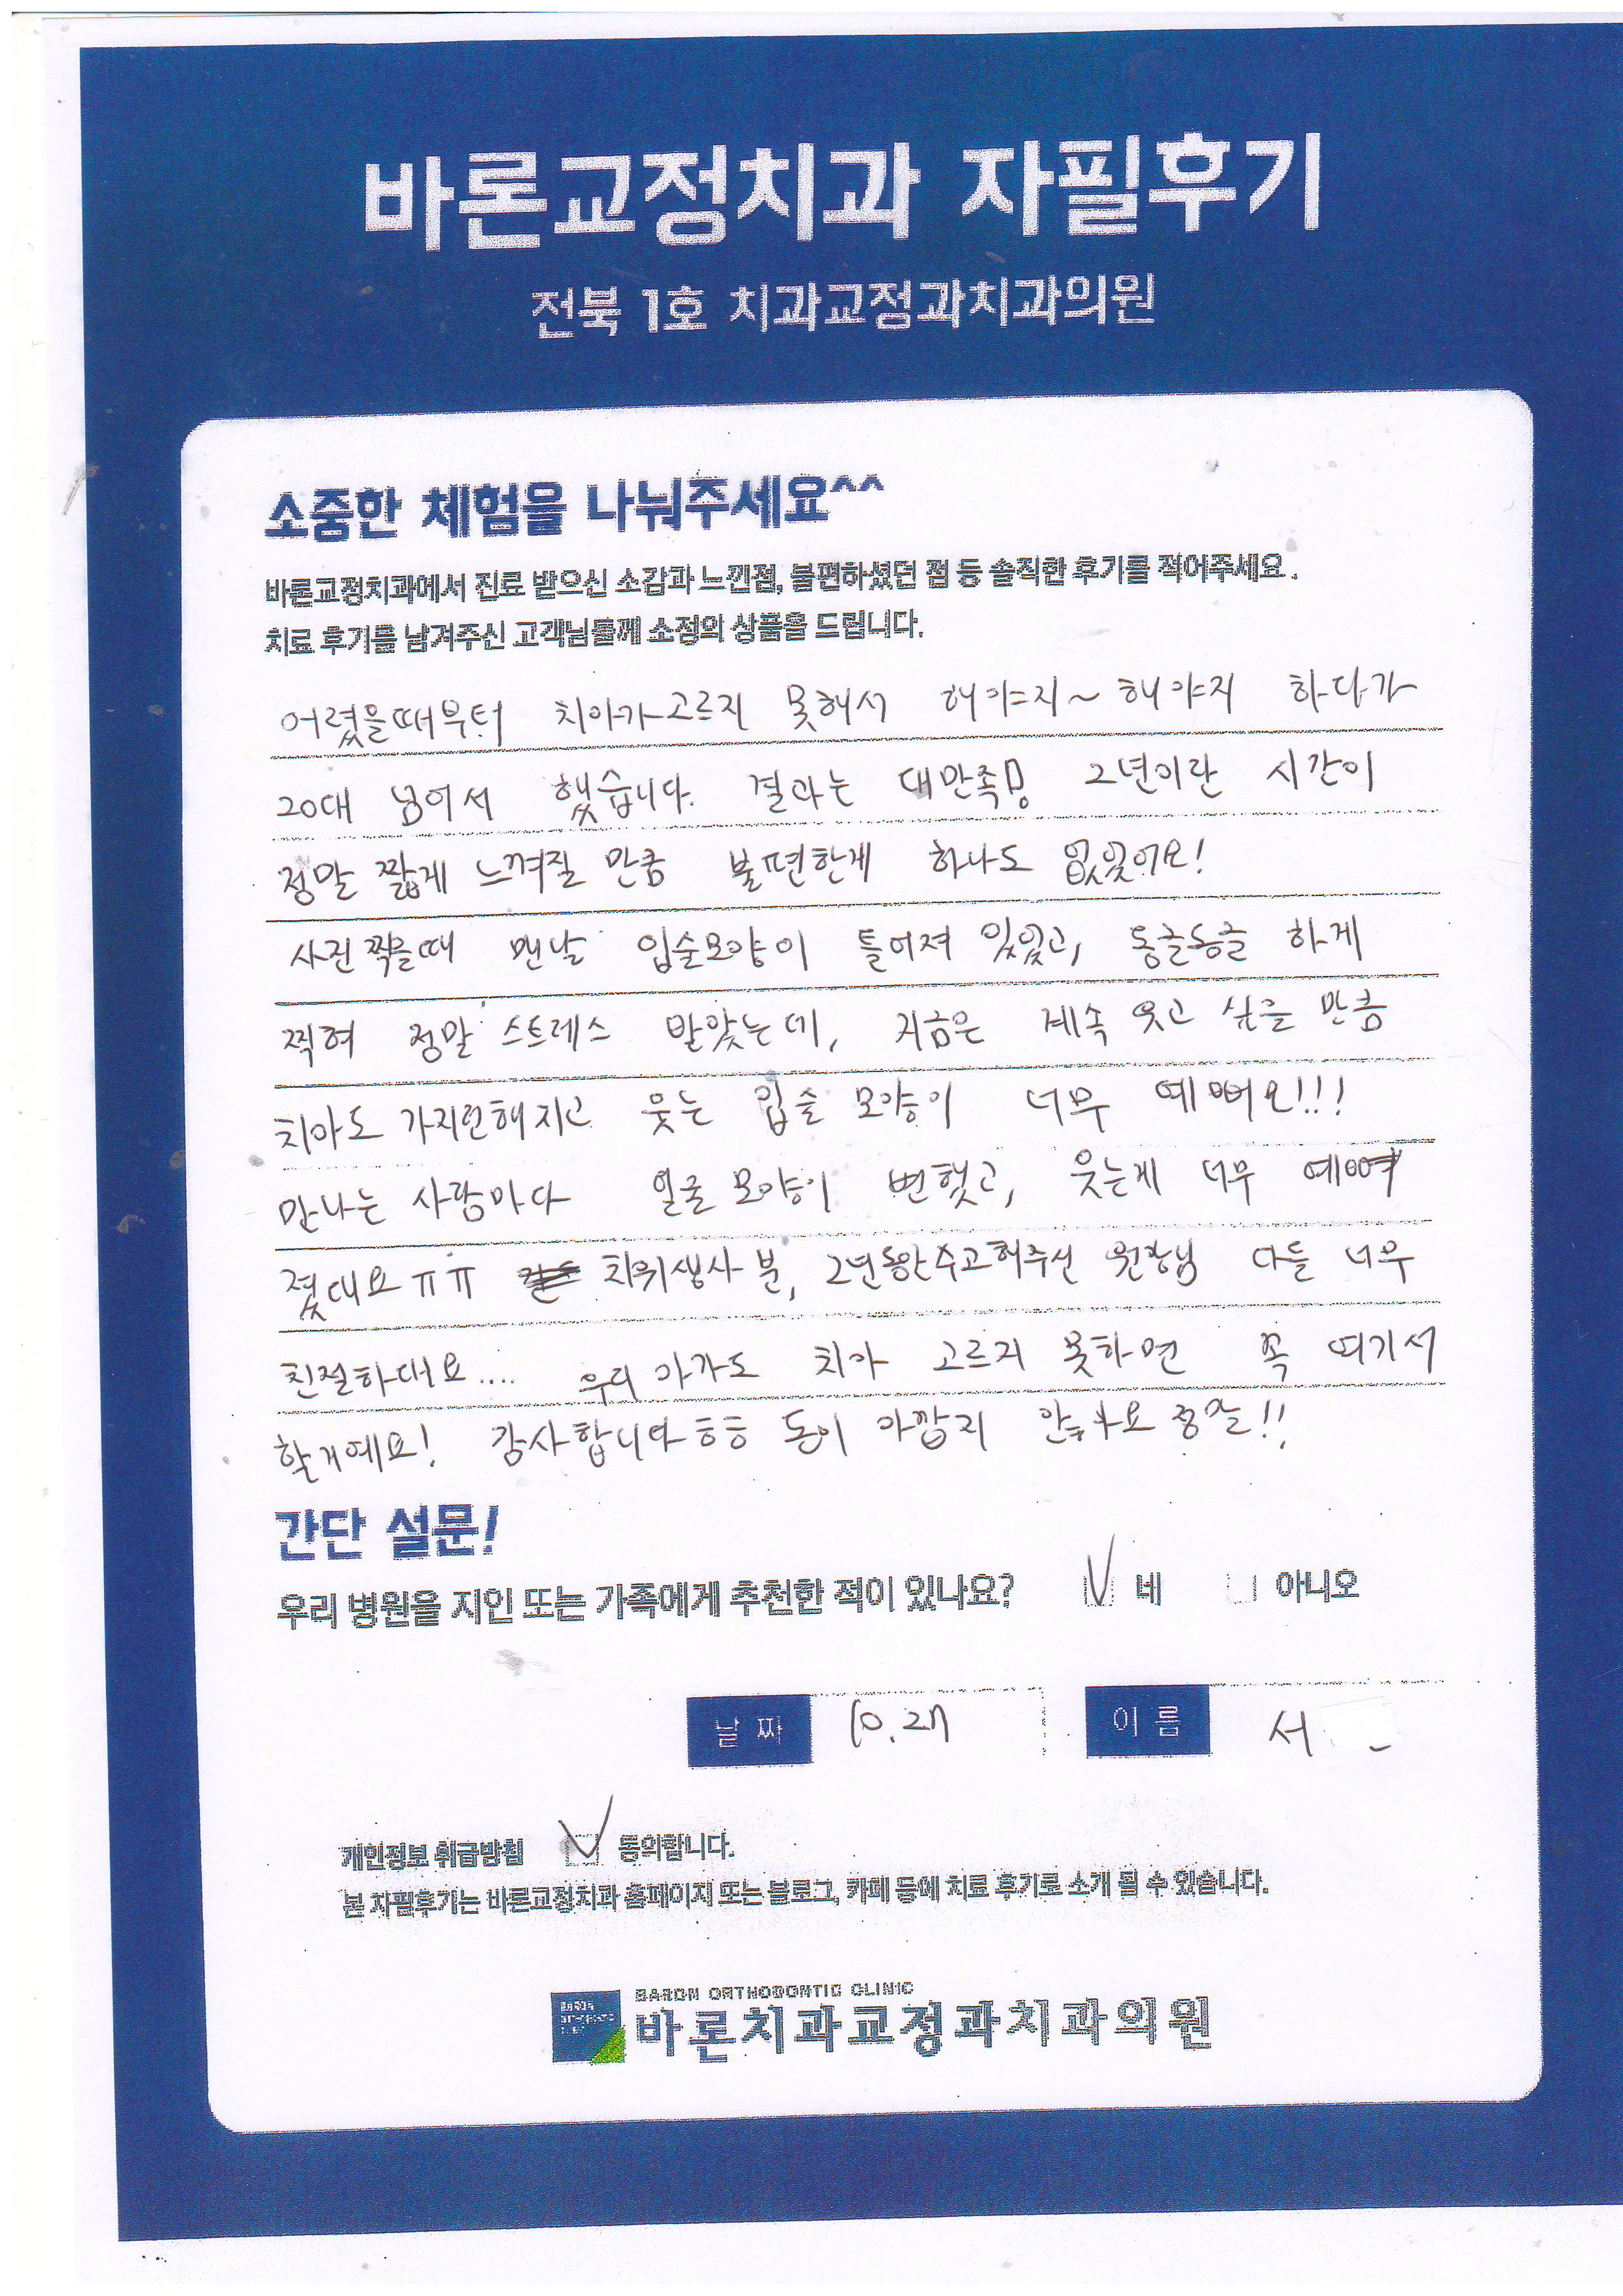 바론교정치과 자필후기
전북 1호 치과교정과치과의원
소중한 체험을 나눠주세요^^
바론교정치과에서 진료 받으신 소감과 느낀점, 불편하셨던 점 등 솔직한 후기를 적어주세요.
치료 후기를 남겨주신 고객님들께 소정의 상품을 드립니다.
어렸을때부터 치아가 고르지 못해서 해야지~ 해야지 하다가
20대 넘어서 했습니다. 결과는 대만족!! 2년이란 시간이
정말 짧게 느껴질 만큼 불편한게 하나도 없었어요!
사진 찍을때 맨날 입술모양이 틀어져 있었고, 동글동글 하게
찍혀 정말 스트레스 받았는데, 지금은 계속 웃고 싶을 만큼
치아도 가지런해지고 웃는 입술 모양이 너무 예뻐요!!!
만나는 사람마다 얼굴 모양이 변했고, 웃는게 너무 예뻐
졌대요ㅠㅠ 치위생사 분, 2년동안 수고해주신 원장님 다들 너무
친절하대요.... 우리 아가도 치아 고르지 못하면 꼭 여기서
할거예요! 감사합니다 ㅎㅎ 돈이 아깝지 않아요 정말!!
간단 설문!
우리 병원을 지인 또는 가족에게 추천한 적이 있나요? 네 아니오
날짜 10.27 이름 서
개인정보 취급방침 동의합니다.
본 자필후기는 바론교정치과 홈페이지 또는 블로그, 카페 등에 치료 후기로 소개 될 수 있습니다.
BARON ORTHODONTIC CLINIC
바론치과교정과치과의원